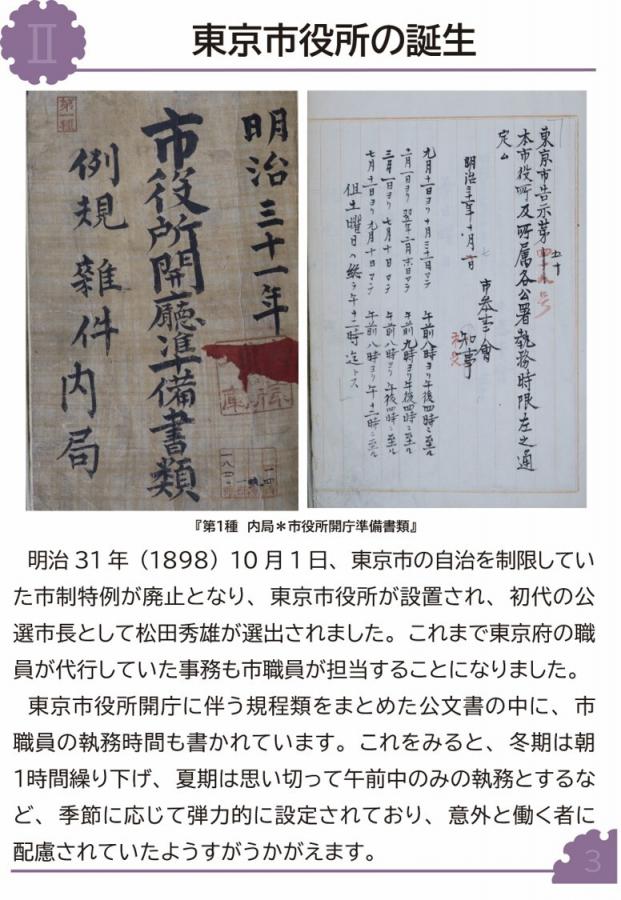 Ⅱ
東京市役所の誕生
第一種
明治三十一年
市役所開廳準備書類
例規雑件内局
東京市告示第
本市役所及所属各公署執務時限左之通
定ム
明治三十一年十月一日
市参事會
知事
九月十一日ヨリ十月三十一日マテ 午前八時ヨリ午後四時ニ至ル
十一月一日ヨリ翌年二月末日マテ 午前九時ヨリ午後四時ニ至ル
三月一日ヨリ七月十日マテ 午前八時ヨリ午後四時ニ至ル
七月十一日ヨリ九月十日マテ 午前八時ヨリ午十二時ニ至ル
但土曜日ハ総テ午十二時迄トス
『第1種 内局*市役所開庁準備書類』
明治 31 年（1898）10 月 1 日、東京市の自治を制限してい
た市制特例が廃止となり、東京市役所が設置され、初代の公
選市長として松田秀雄が選出されました。これまで東京府の職
員が代行していた事務も市職員が担当することになりました。
東京市役所開庁に伴う規程類をまとめた公文書の中に、市
職員の執務時間も書かれています。これをみると、冬期は朝
1時間繰り下げ、夏期は思い切って午前中のみの執務とするな
ど、季節に応じて弾力的に設定されており、意外と働く者に
配慮されていたようすがうかがえます。
3